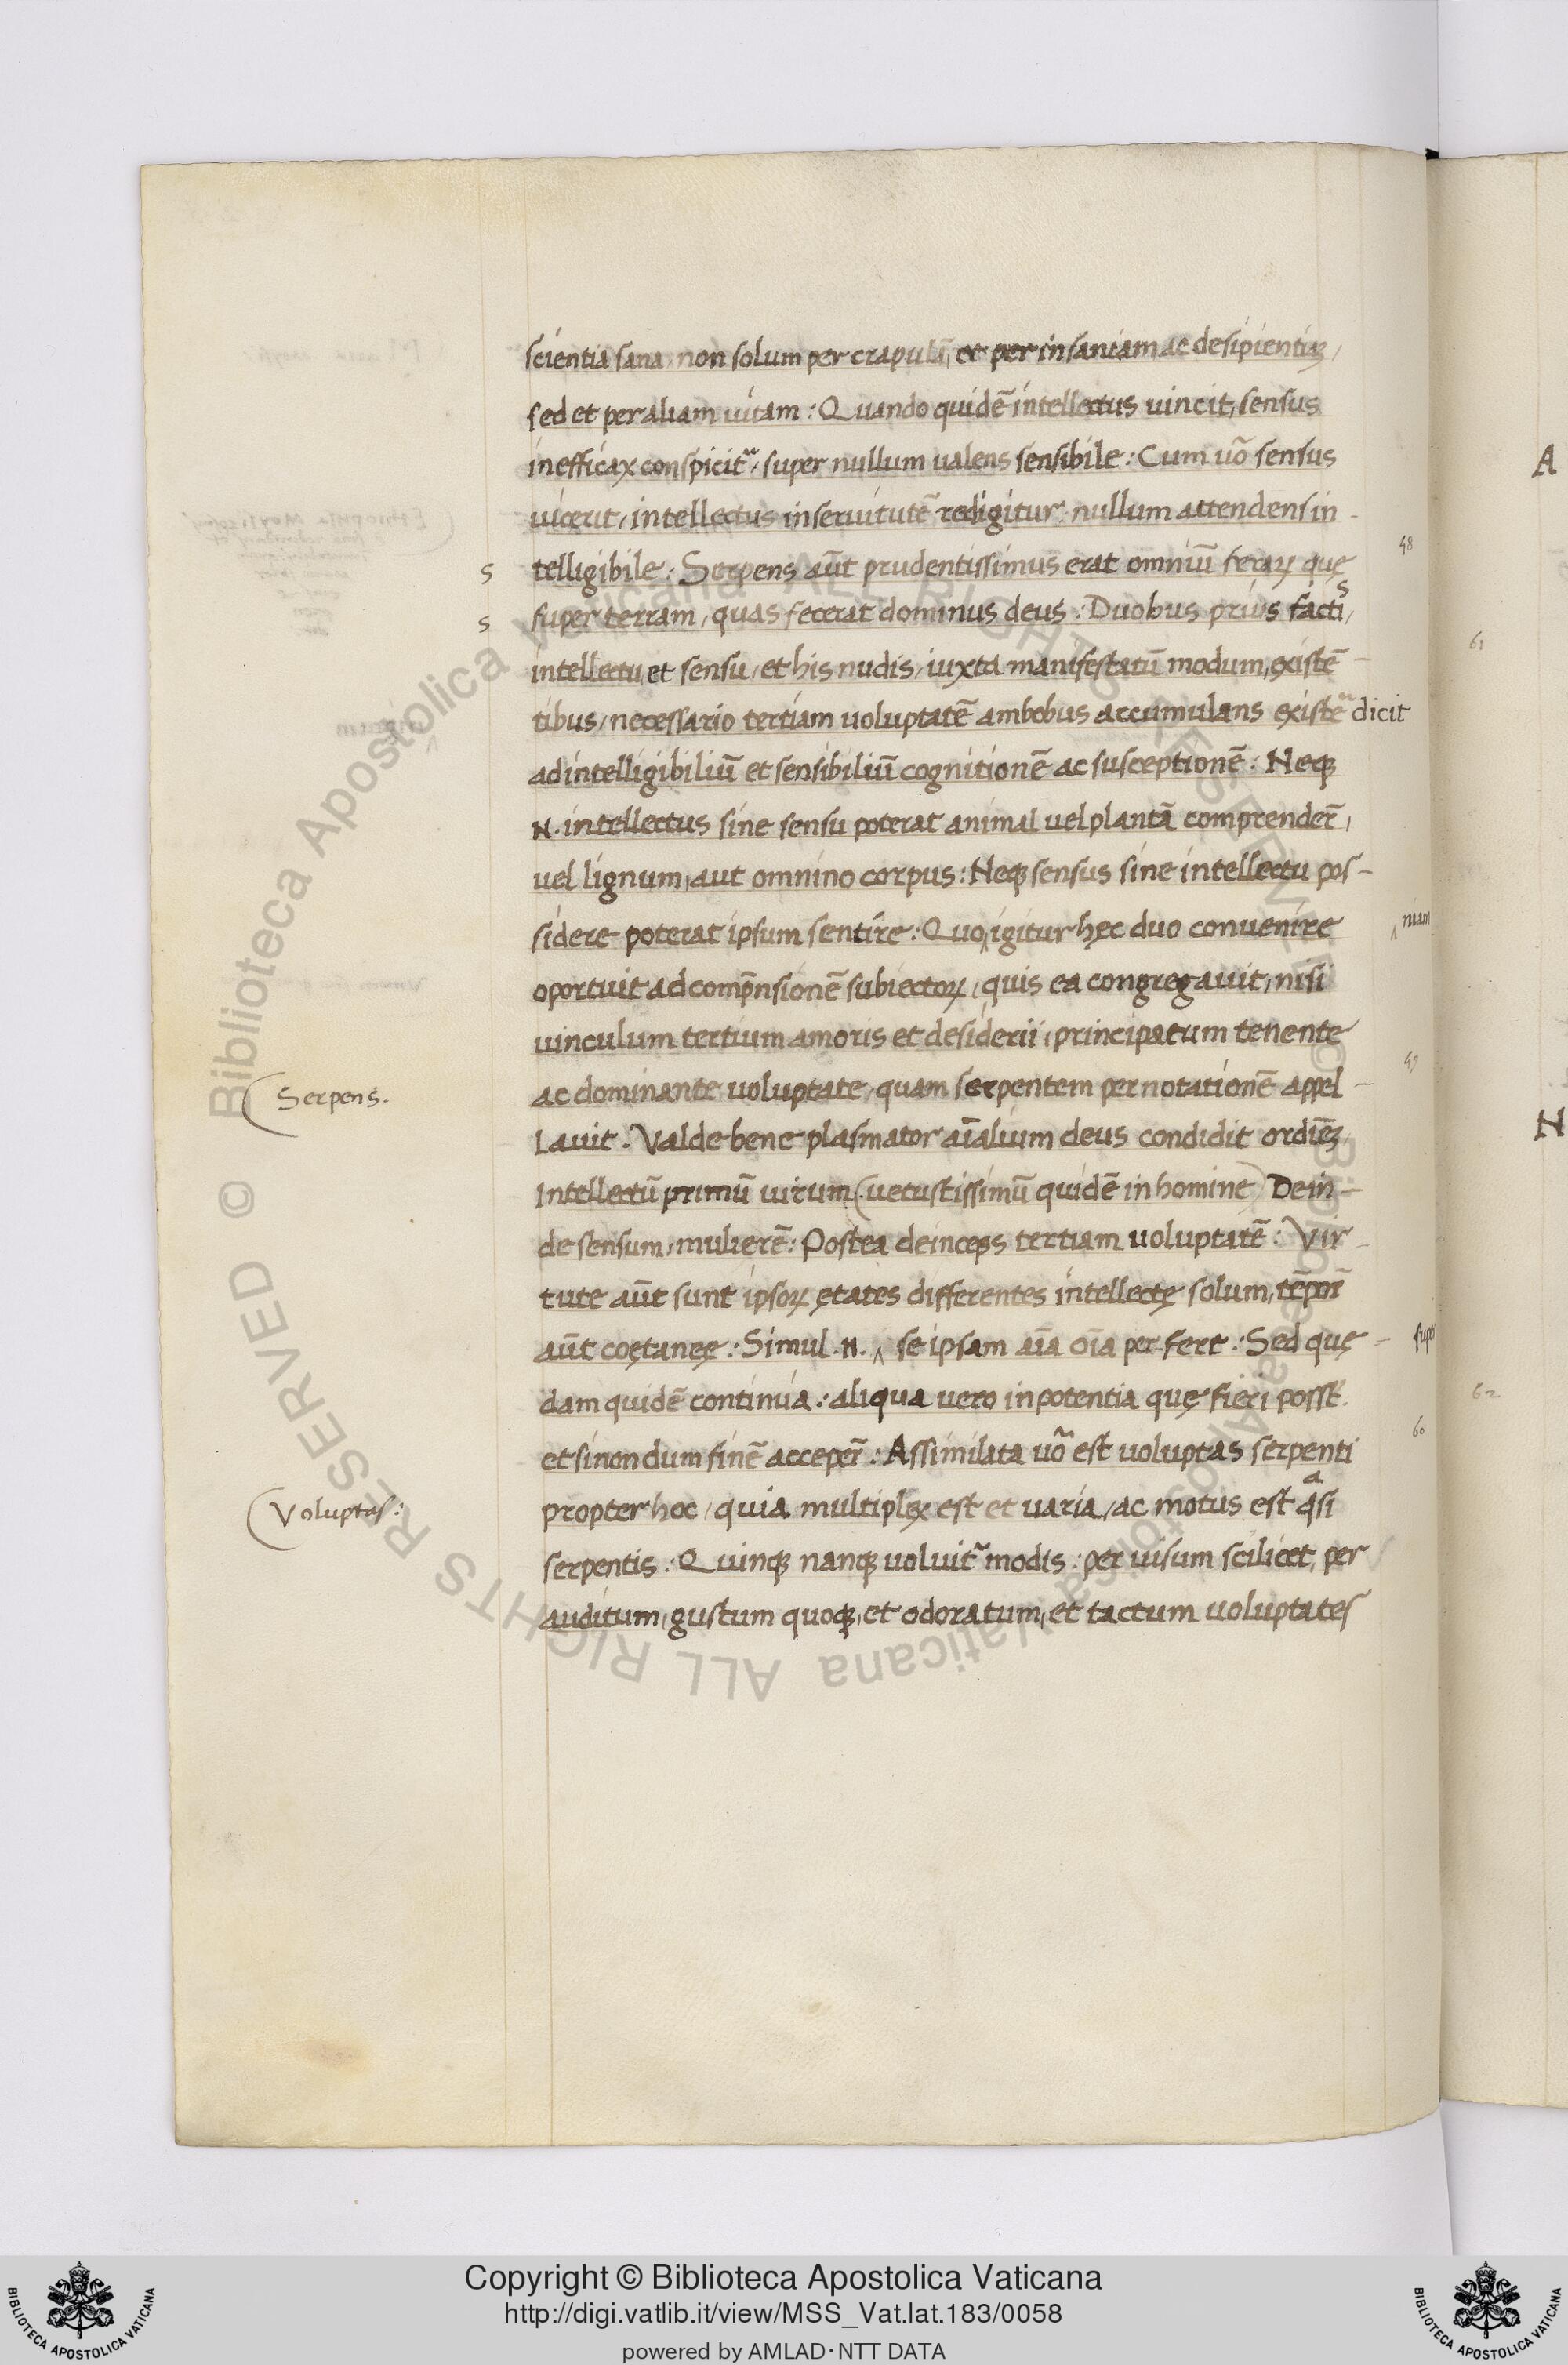 scientia sana non solum per crapulā, et per insaniam ac desipientiā,
sed et per aliam uitam: Quando quidē intellectus uincit, sensus
inefficax conspicit᷑, super nullum ualens sensibile: Cum uō sensus
uicerit, intellectus in seruitutē redigitur: nullum attendens in-
48
s telligibile: Serpens aūt prudentissimus erat omniū ferarꝝ quę
s super terram, quas fecerat dominus deus: Duobus prius factis,
intellectu, et sensu, et his nudis, iuxta manifestatū modum, existē-
tibus, necessario tertiam uoluptatē ambobus accumulans existē dicit
ad intelligibiliū et sensibiliū cognitionē ac susceptionē: Neqꝫ
.N. intellectus sine sensu poterat animal uel plantā comprender̄,
uel lignum, aut omnino corpus: Neqꝫ sensus sine intellectu pos-
sidere poterat ipsum sentire: Quo‸ igitur hęc duo conuenire ‸niam
oportuit ad comp̄nsionē subiectorꝝ, quis ea congregauit, nisi
uinculum tertium amoris et desiderii, principatum tenente
59
Serpens. ac dominante uoluptate, quam serpentem per notationē appel-
lauit. Valde bene plasmator aīalium deus condidit ordinē,
Intellectū primū uirum (uetustissimū quidē in homine) Dein-
de sensum, mulierē: Postea deinceps tertiam uoluptatē: Vir-
tute aūt sunt ipsorꝝ ętates differentes intellectę solum, tēpor̄
aūt coętanęę: Simul .N. ‸ se ipsam aīa oīa per fert: Sed quę- super
dam quidē continua: aliqua uero in potentia quę fieri posst̄.
60
et si nondum finē acceper̄: Assimilata uō est uoluptas serpenti
Voluptas: propter hoc, quia multiplex est et uaria, ac motus est qᵃsi
serpentis: Quinqꝫ nanqꝫ uoluit᷑ modis: per uisum scilicet, per
auditum, gustum quoqꝫ, et odoratum, et tactum uoluptates
A
61
N
62
© Biblioteca Apostolica Vaticana ALL RIGHTS RESERVED
Copyright © Biblioteca Apostolica Vaticana
http://digi.vatlib.it/view/MSS_Vat.lat.183/0058
powered by AMLAD·NTT DATA
BIBLIOTECA APOSTOLICA VATICANA
BIBLIOTECA APOSTOLICA VATICANA